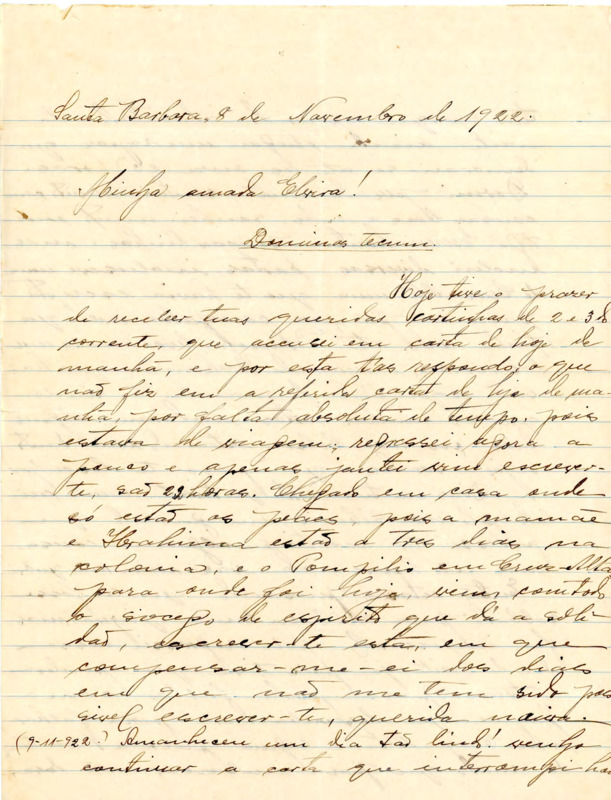 Santa Barbara, 8 de Novembro de 1922.
Minha amada Elvira!
Dominus tecum.
Hoje tive o prazer
de receber tuas queridas cartinhas de 2 e 3 do
corrente, que accusei em carta de hoje de
manhã, e por esta tas respondo, o que
não fiz em a referida carta de hoje de ma-
nhã, por falta absoluta de tempo, pois
estava de viagem; regressei agora a
pouco e apenas jantei vim escrever-
te, são 23 horas. Chegado em casa onde
só estão os peães, pois a mamãe
e estão a tres dias na
colonia, e o Pompilio em Cruz-Alta
para onde foi hoje, venho com todo
o socego de espirito que dá a soli-
dão, escrever-te esta, em que
compensar-me-ei dos dias
em que não me tem sido pos
sivel escrever-te, querida noiva.
(9-11-922.) Amanheceu um dia tão lindo! venho
continuar a carta que interrompi